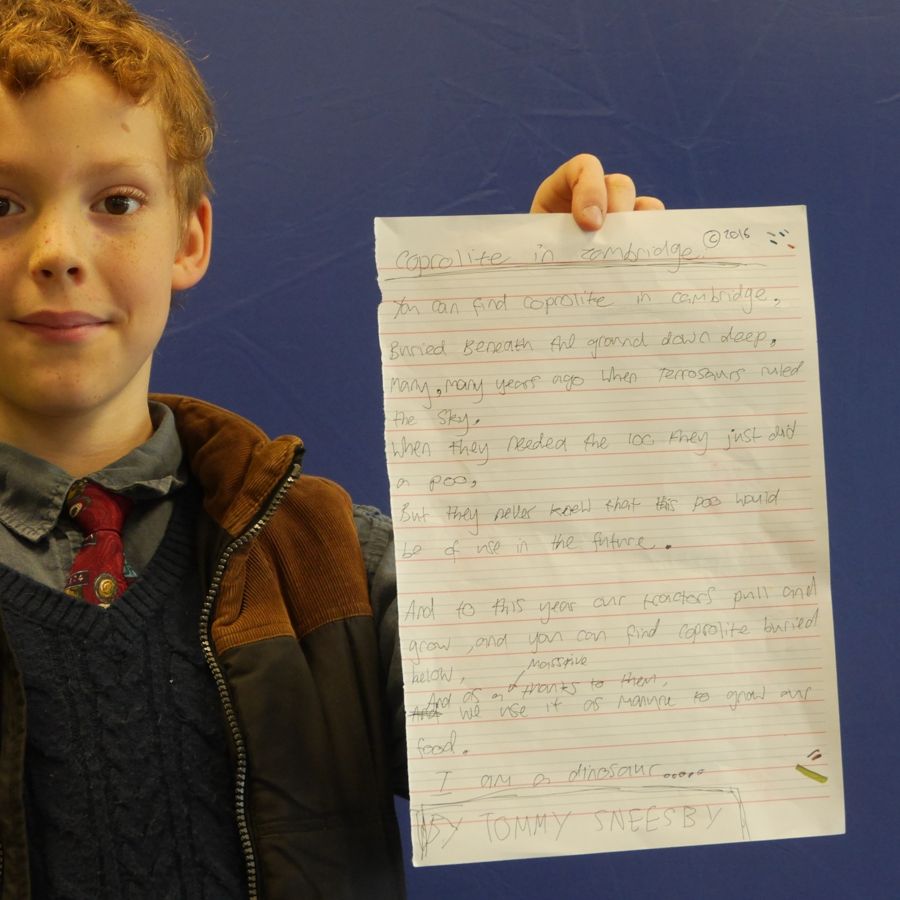 © 2016
Coprolite in Cambridge.
You can find coprolite in cambridge,
Buried Beneath the ground down deep,
Many, many years ago when Terrosaurs ruled
the sky.
When they needed the loo they just did
a poo,
But they never knew that this poo would
be of use in the future..
And to this year our tractors pull and
grow, and you can find coprolite buried
below,
massive
And as a thanks to them,
And we use it as manure to grow our
food.
I am a dinosaur.....
BY TOMMY SNEESBY